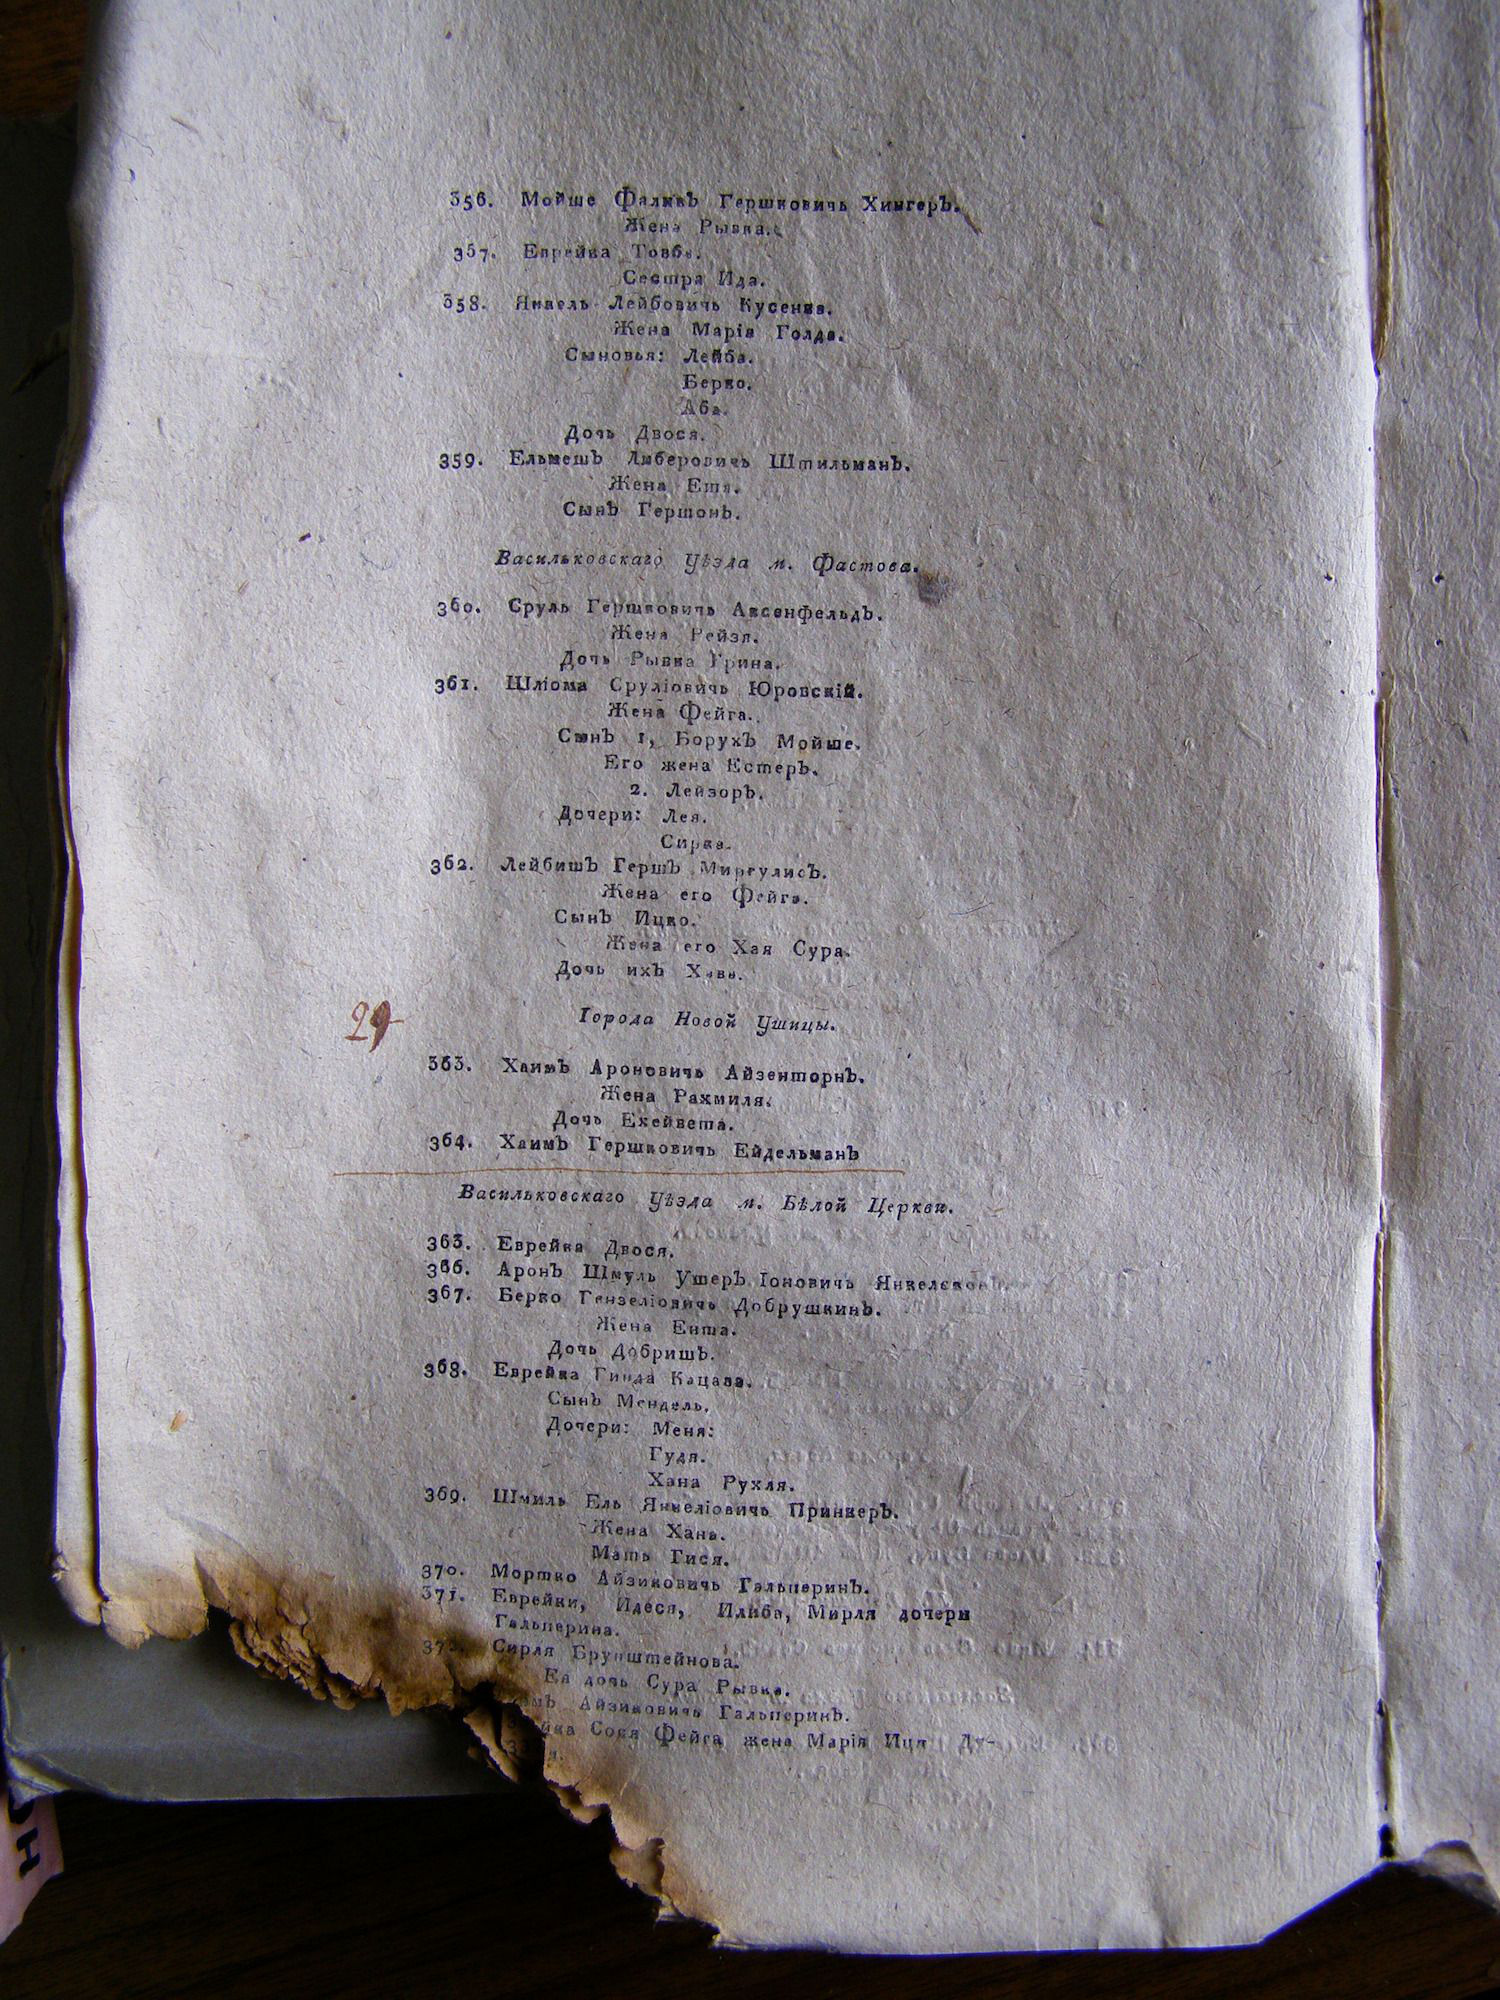 356. Мойше Фаликъ Гершковичь Хингеръ.
Жена Рывка.
357. Еврейка Товба.
Сестра Ида.
358. Янкель Лейбовичь Кусенка.
Жена Марія Голда.
Сыновья: Лейба.
Берко.
Аба.
Дочь Двося.
359. Ельмешъ Либеровичь Штильманъ.
Жена Етя.
Сынъ Гершонъ.
Васильковскаго Уѣзда м. Фастова.
360. Сруль Гершковичь Аксенфельдъ.
Жена Рейзя.
Дочь Рывка Грина.
361. Шліома Сруліовичь Юровскій.
Жена Фейга.
Сынъ 1, Борухъ Мойше.
Его жена Естеръ.
2. Лейзоръ.
Дочери: Лея.
Сирка.
362. Лейбишъ Гершъ Миргулисъ.
Жена его Фейга.
Сынъ Ицко.
Жена его Хая Сура.
Дочь ихъ Хава.
Города Новой Ушицы.
29
363. Хаимъ Ароновичь Айзенторнъ.
Жена Рахмиля.
Дочь Ехейвета.
364. Хаимъ Гершковичь Ейдельманъ
Васильковскаго Уѣзда м. Бѣлой Церкви.
365. Еврейка Двося.
366. Аронъ Шмуль Ушеръ Іоновичь
367. Берко Гензеліовичь Добрушкинъ.
Жена Ента.
Дочь Добришъ.
368. Еврейка Гинда Кацава.
Сынъ Мендель.
Дочери: Меня:
Гудя.
Хана Рухля.
369. Шмиль Ель Янкеліовичь Принкеръ.
Жена Хана.
Мать Гися.
370. Мортко Айзиковичь Гальперинъ.
371. Еврейки, Идеся, Илиба, Мирля дочери
Гальперина.
372. Сирля Брунштейнова.
Ея дочь Сура Рывка.
Айзиковичь Гальперинъ.
Сося Фейга жена Марія Иця Ду-